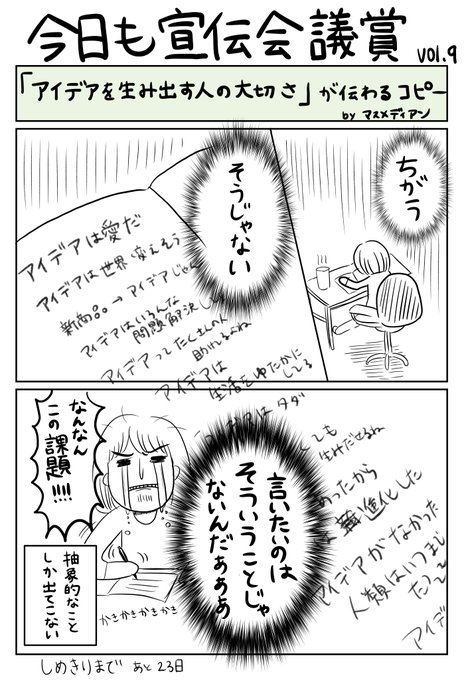 今日も宣伝会議賞 vol.9
「アイデアを生み出す人の大切さ」が伝わるコピー
by マスメディアン
ちがう
そうじゃない
アイデアは愛だ
アイデアは世界変えそう
新商品→アイデアじゃん
アイデアはいろんな
問題解決し
アイデアってたくさんの人
助けるよね
アイデアは
生活をゆたかに
してる
なんなん
この課題!!!!
言いたいのは
そういうことじゃ
ないんだぁぁぁ
はタダ
ても
生みだせるね
あったから
進化した
アイデアがなかった
人類はいつまで
だって
アイデ
かきかきかきかき
抽象的なこと
しか出てこない
しめきりまで あと23日